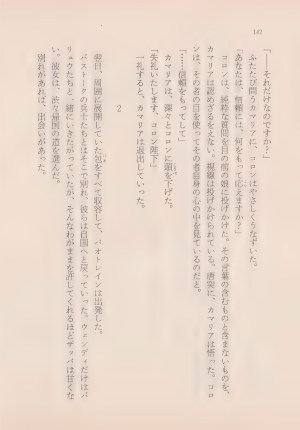 142
「……それだけなのですか？」
ふたたび問うカマリアに、コロンはやさしくうなずいた。
「あなたは、信頼には、何をもって応えますか？」
コロンは、純粋な質問を目の前の娘に投げかけた。その言葉の含むものと含まないものを、
カマリアは認めざるをえない。視線は投げかけられている。唐突に、カマリアは悟った。コロ
ンは、その者の目を使ってその者自身の心の中を見ているのだと。
「……信頼をもってして」
カマリアは、深々とコロンに頭を下げた。
「失礼いたします、コロン陛下」
一礼すると、カマリアは退出していった。
2
翌日、周囲に展開していた包をすべて収容して、パオトレインは出発した。
パストークの兵士たちとはそこで別れ、彼らは自国へと戻っていった。ウェンディだけはバ
リュウたちと一緒にいきたがっていたが、そんなわがままを許してくれるほどザッパは甘くな
い。彼女は、渋々帰国の途を選んだ。
別れがあれば、出会いがあった。